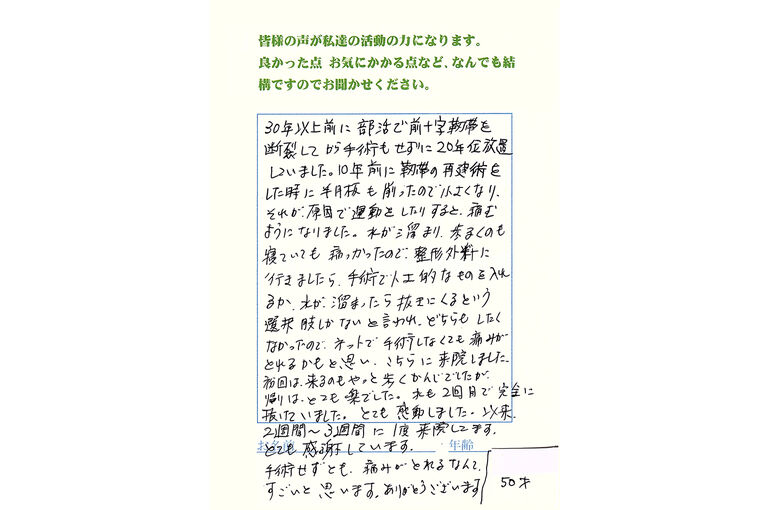 皆様の声が私達の活動の力になります。
良かった点 お気にかかる点など、なんでも結
構ですのでお聞かせください。
30年以上前に部活で前十字靭帯を
断裂してから手術もせずに20年位放置
していました。10年前に靭帯の再建術を
した時に半月板も削ったので小さくなり、
それが原因で運動をしたりすると、痛む
ようになりました。水が溜まり、歩るくのも
寝ていても痛かったので、整形外科に
行きましたら、手術で人工的なものを入れ
るか、水が溜まったら抜きにくるという
選択肢しかないと言われ、どちらもしたく
なかったので、ネットで手術しなくても痛みが
とれるかもと思い、こちらに来院しました。
初回は、来るのもやっと歩くかんじでしたが、
帰りは、とても楽でした。水も2回目で完全に
抜けていました。とても感動しました。以来、
2週間〜3週間に1度来院してます。
とても感謝しています。
お名前 年齢
手術せずとも、痛みがとれるなんて、
すごいと思います。ありがとうございます
50才